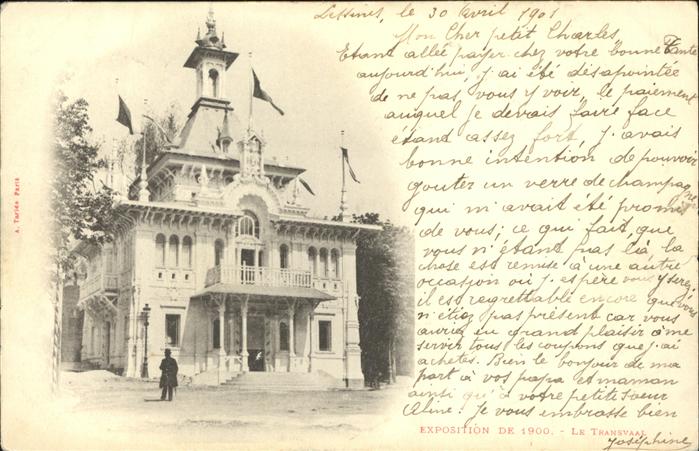 Lessines, le 30 Avril 1901
Mon Cher petit Charles,
Etant allée payer chez votre bonne Tante
aujourd'hui, j'ai été désapointée
de ne pas vous y voir, le paiement
auquel je devrais faire face
étant assez fort, j'avais
bonne intention de pouvoir
goûter un verre de champagne
qui m'avait été promis
de vous; ce qui fait, que
vous n'étant pas là la
chose est remise à une autre
occasion où j'espère vous y serez,
il est regrettable encore que vous
n'étiez pas présent car vous
auriez eu grand plaisir à me
servir tous les coupons que j'ai
achetés. Bien le bonjour de ma
part à vos papa et maman
ainsi qu'à votre petite sœur
Aline! Je vous embrasse bien
Joséphine
EXPOSITION DE 1900. - LE TRANSVAAL
A. Taride Paris